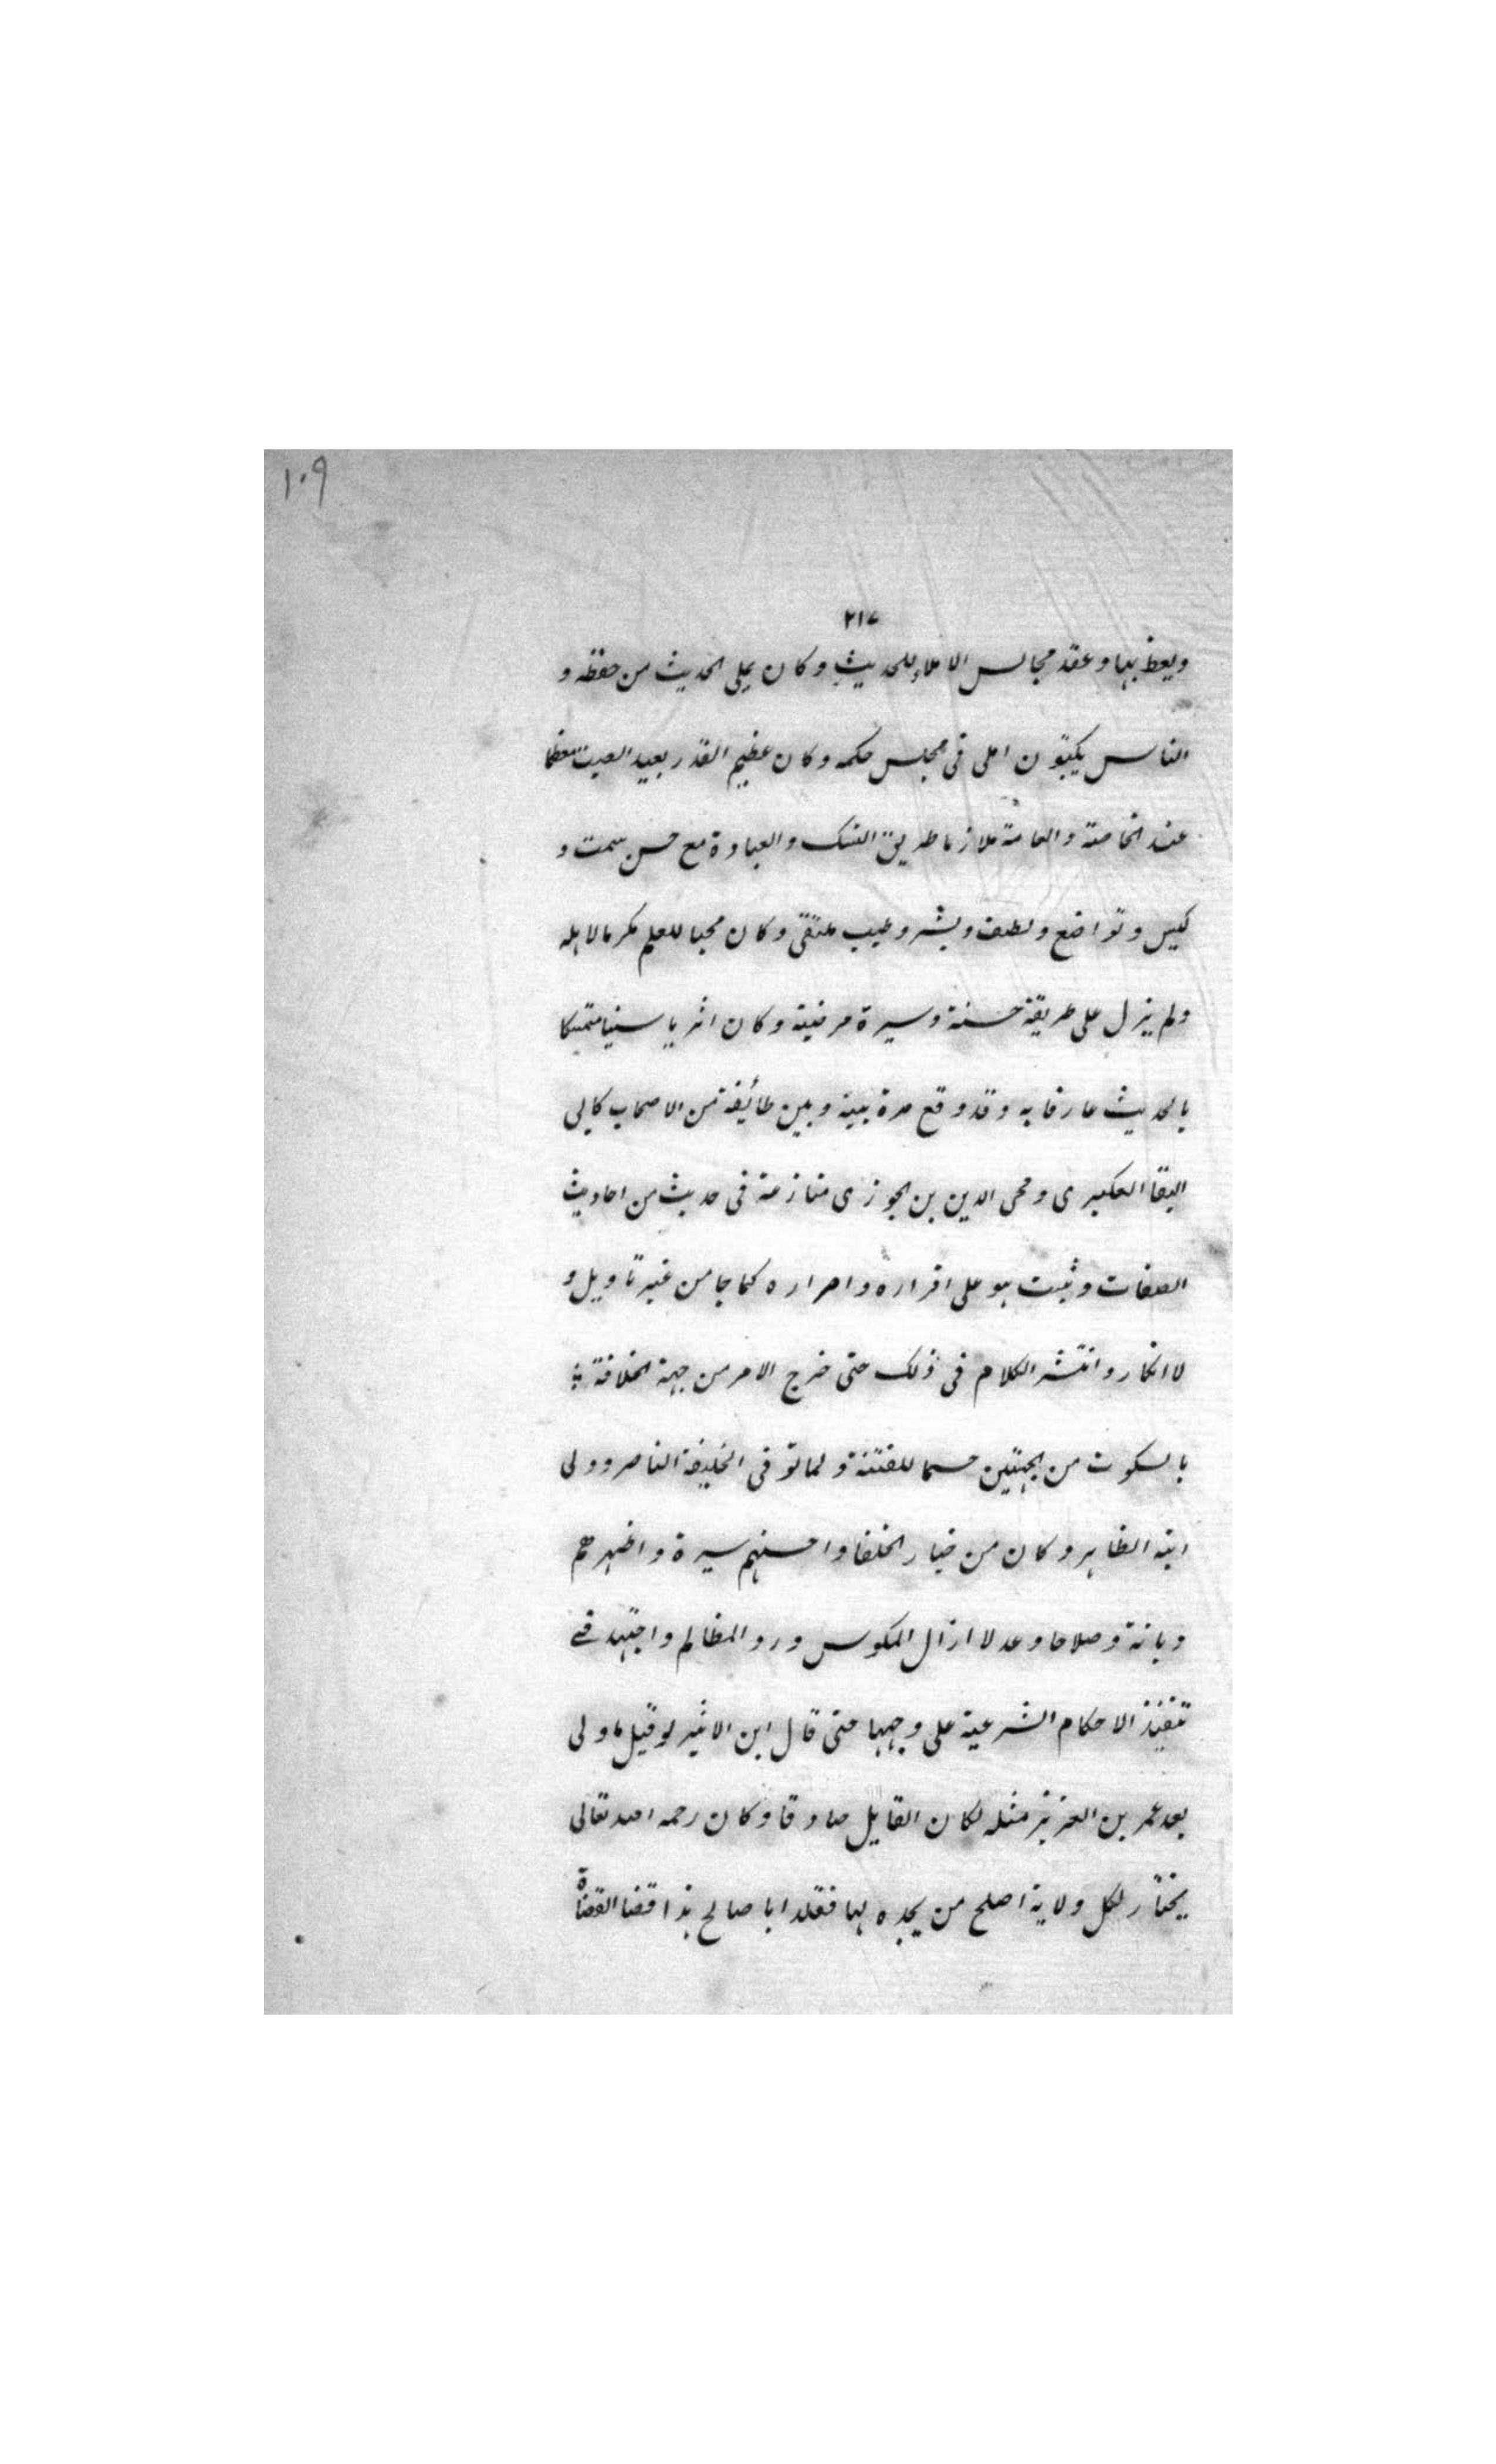 ١٠٩
٢١٧
ويعظ بها وعقد مجالس الاملاء للحديث وكان يملى الحديث من حفظه و
الناس يكتبون املى فى مجلس حكمه وكان عظيم القدر بعيد الصيت معظما
عند الخاصة والعامة ملازما طريق النسك والعبادة مع حسن سمت و
كيس وتواضع ولطف وبشر وطيب ملتقى وكان محبا للعلم مكرما لاهله
ولم يزل على طريقة حسنة وسيرة مرضية وكان اثريا سنيا متمسكا
بالحديث عارفا به وقد وقع مرة بينه وبين طائفة من الاصحاب كابى
البقا العكبرى ومحى الدين بن الجوزى منازعة فى حديث من احاديث
الصفات وثبت هو على اقراره وامراره كما جا من غير تاويل و
لا انكار وانتشر الكلام فى ذلك حتى خرج الامر من جهة الخلافة
بالسكوت من الجهتين حسما للفتنة ولما توفى الخليفة الناصر وولى
ابنه الظاهر وكان من خيار الخلفا واحسنهم سيرة واظهرهم
ديانة وصلاحا وعدلا ازال المكوس ورد المظالم واجتهد فى
تنفيذ الاحكام الشرعية على وجهها حتى قال ابن الاثير لو قيل ما ولى
بعد عمر بن العزيز مثله لكان القايل صادقا وكان رحمه الله تعالى
يختار لكل ولاية اصلح من يجده لها فقلد ابا صالح هذا قضا القضاة